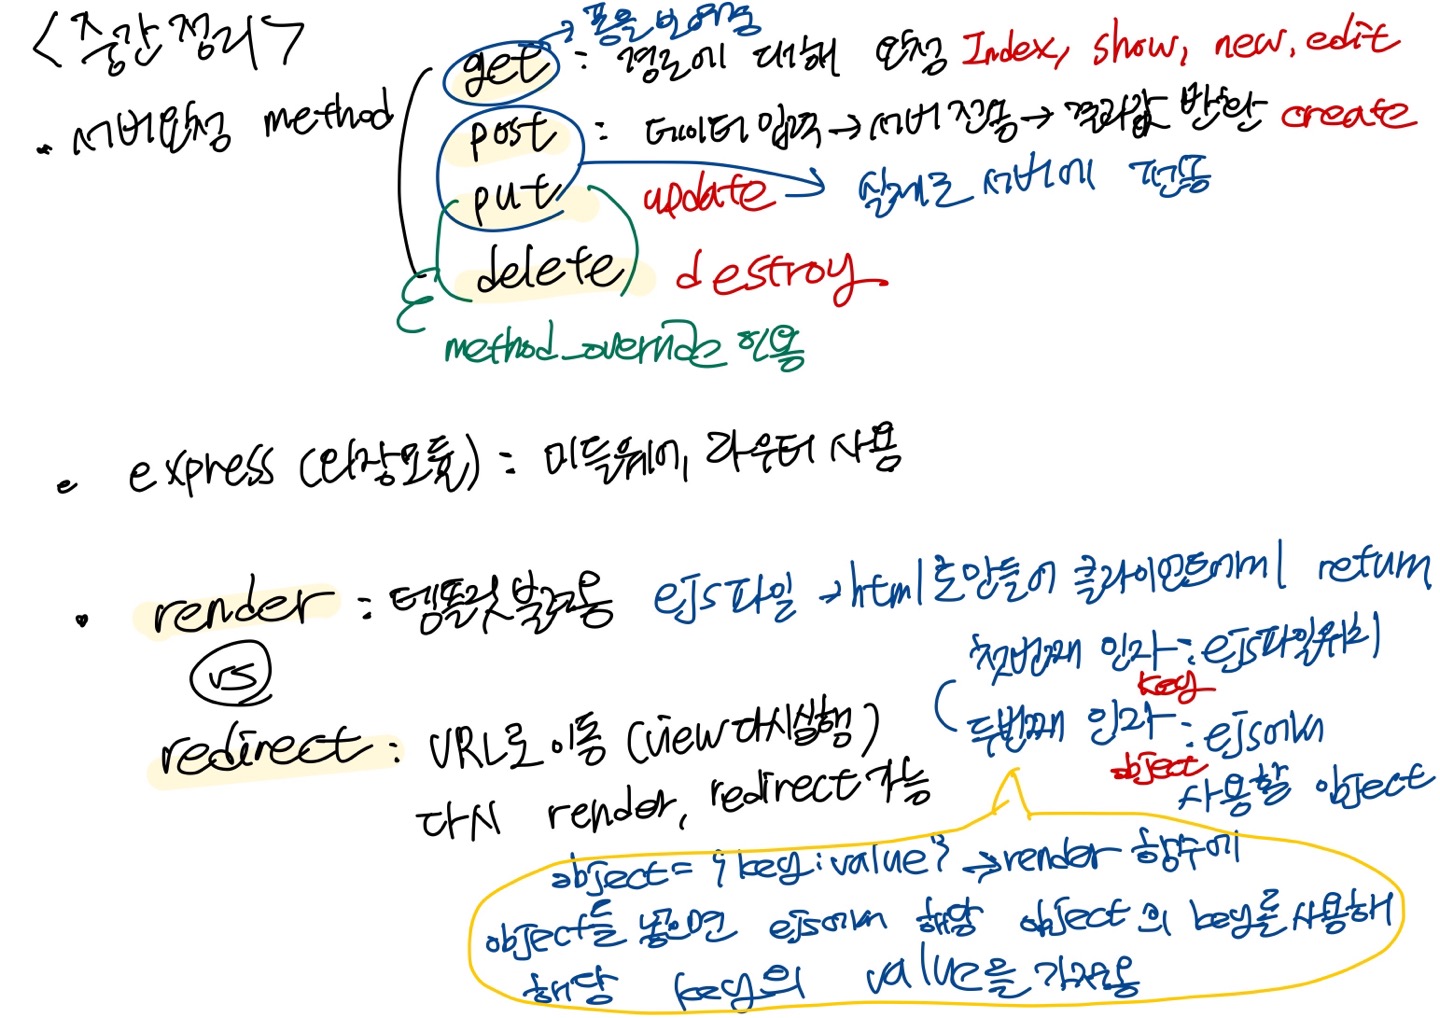 <중간정리>
get → 폼을 보여줌
: 경로에 대해 요청 Index, show, new, edit
• 서버요청 method
post : 데이터 입력 → 서버 전송 → 결과값 반환 create
put update → 실제로 서버에 전송
delete destroy
method_override 이용
• express (내장모듈) : 미들웨어, 라우터 사용
• render : 템플릿 불러옴 ejs파일 → html로 만들어 클라이언트에게 return
vs
첫번째 인자 : ejs파일위치
key
redirect : URL로 이동 (view 다시실행)
두번째 인자 : ejs에서
object
사용할 object
다시 render, redirect 가능
object = {key : value} → render 함수에
object를 넣으면 ejs에서 해당 object의 key를 사용해
해당 key의 value를 가져옴